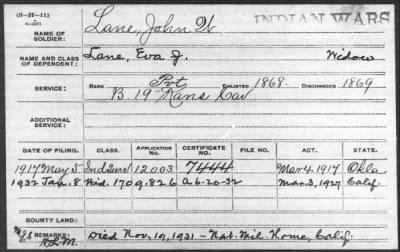 (3-II-11)
INDIAN WARS
NAME OF SOLDIER: Lane, John W
NAME AND CLASS OF DEPENDENT: Lane, Eva J. Widow
SERVICE: RANK Pvt ENLISTED 1868. DISCHARGED 1869
B. 19" Kans Cav
ADDITIONAL SERVICE:
DATE OF FILING. CLASS. APPLICATION No. CERTIFICATE No. FILE NO. ACT. STATE.
1917 May 5 Ind Surv 12003 7444 Mar 4. 1917 Okla
1932 Jan. 8 Wid. 1709.826 A-6-20-32 Mar. 3, 1927 Calif.
BOUNTY LAND:
REMARKS: Died Nov. 19, 1931 - Nat. Mil. Home, Calif.